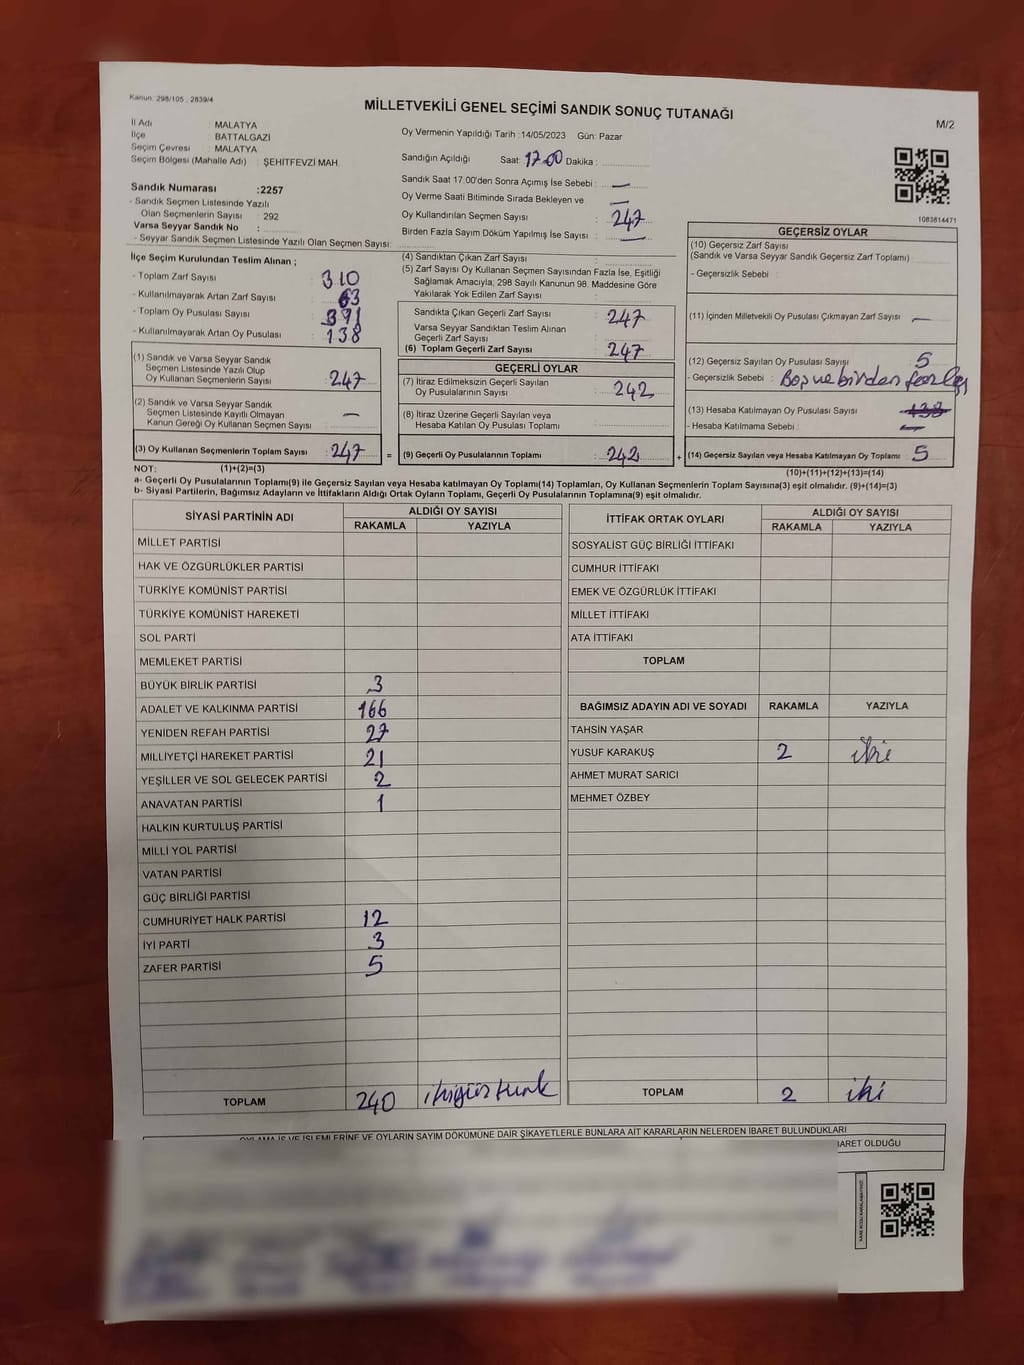 Kanun: 298/105 , 2839/4
MİLLETVEKİLİ GENEL SEÇİMİ SANDIK SONUÇ TUTANAĞI
M/2
İl Adı : MALATYA
İlçe : BATTALGAZİ
Seçim Çevresi : MALATYA
Seçim Bölgesi (Mahalle Adı) : ŞEHİTFEVZİ MAH.
Sandık Numarası :2257
- Sandık Seçmen Listesinde Yazılı
Olan Seçmenlerin Sayısı : 292
Varsa Seyyar Sandık No :
- Seyyar Sandık Seçmen Listesinde Yazılı Olan Seçmen Sayısı:
Oy Vermenin Yapıldığı Tarih :14/05/2023 Gün: Pazar
Sandığın Açıldığı Saat: 17.00 Dakika :
Sandık Saat 17.00'den Sonra Açımış İse Sebebi : —
Oy Verme Saati Bitiminde Sırada Bekleyen ve : —
Oy Kullandırılan Seçmen Sayısı : 247
Birden Fazla Sayım Döküm Yapılmış İse Sayısı : —
1083814471
İlçe Seçim Kurulundan Teslim Alınan ;
- Toplam Zarf Sayısı : 310
- Kullanılmayarak Artan Zarf Sayısı : 63
- Toplam Oy Pusulası Sayısı : 391
- Kullanılmayarak Artan Oy Pusulası : 138
(1) Sandık ve Varsa Seyyar Sandık
Seçmen Listesinde Yazılı Olup
Oy Kullanan Seçmenlerin Sayısı : 247
(2) Sandık ve Varsa Seyyar Sandık
Seçmen Listesinde Kayıtlı Olmayan
Kanun Gereği Oy Kullanan Seçmen Sayısı : —
(3) Oy Kullanan Seçmenlerin Toplam Sayısı : 247 =
(4) Sandıktan Çıkan Zarf Sayısı :
(5) Zarf Sayısı Oy Kullanan Seçmen Sayısından Fazla İse, Eşitliği
Sağlamak Amacıyla; 298 Sayılı Kanunun 98. Maddesine Göre
Yakılarak Yok Edilen Zarf Sayısı :
Sandıkta Çıkan Geçerli Zarf Sayısı : 247
Varsa Seyyar Sandıktan Teslim Alınan
Geçerli Zarf Sayısı :
(6) Toplam Geçerli Zarf Sayısı : 247
GEÇERLİ OYLAR
(7) İtiraz Edilmeksizin Geçerli Sayılan
Oy Pusulalarının Sayısı : 242
(8) İtiraz Üzerine Geçerli Sayılan veya
Hesaba Katılan Oy Pusulası Toplamı :
(9) Geçerli Oy Pusulalarının Toplamı : 242 +
GEÇERSİZ OYLAR
(10) Geçersiz Zarf Sayısı
(Sandık ve Varsa Seyyar Sandık Geçersiz Zarf Toplamı) :
- Geçersizlik Sebebi :
(11) İçinden Milletvekili Oy Pusulası Çıkmayan Zarf Sayısı : —
(12) Geçersiz Sayılan Oy Pusulası Sayısı : 5
- Geçersizlik Sebebi : Boş ve birden fazla
(13) Hesaba Katılmayan Oy Pusulası Sayısı : 138
- Hesaba Katılmama Sebebi : —
(14) Geçersiz Sayılan veya Hesaba Katılmayan Oy Toplamı : 5
NOT: (1)+(2)=(3) (10)+(11)+(12)+(13)=(14)
a- Geçerli Oy Pusulalarının Toplamı(9) ile Geçersiz Sayılan veya Hesaba katılmayan Oy Toplamı(14) Toplamları, Oy Kullanan Seçmenlerin Toplam Sayısına(3) eşit olmalıdır. (9)+(14)=(3)
b- Siyasi Partilerin, Bağımsız Adayların ve İttifakların Aldığı Ortak Oyların Toplamı, Geçerli Oy Pusulalarının Toplamına(9) eşit olmalıdır.
SİYASİ PARTİNİN ADI ALDIĞI OY SAYISI
RAKAMLA YAZIYLA
MİLLET PARTİSİ
HAK VE ÖZGÜRLÜKLER PARTİSİ
TÜRKİYE KOMÜNİST PARTİSİ
TÜRKİYE KOMÜNİST HAREKETİ
SOL PARTİ
MEMLEKET PARTİSİ
BÜYÜK BİRLİK PARTİSİ 3
ADALET VE KALKINMA PARTİSİ 166
YENİDEN REFAH PARTİSİ 27
MİLLİYETÇİ HAREKET PARTİSİ 21
YEŞİLLER VE SOL GELECEK PARTİSİ 2
ANAVATAN PARTİSİ 1
HALKIN KURTULUŞ PARTİSİ
MİLLİ YOL PARTİSİ
VATAN PARTİSİ
GÜÇ BİRLİĞİ PARTİSİ
CUMHURİYET HALK PARTİSİ 12
İYİ PARTİ 3
ZAFER PARTİSİ 5
TOPLAM 240 ikiyüz kırk
İTTİFAK ORTAK OYLARI ALDIĞI OY SAYISI
RAKAMLA YAZIYLA
SOSYALİST GÜÇ BİRLİĞİ İTTİFAKI
CUMHUR İTTİFAKI
EMEK VE ÖZGÜRLÜK İTTİFAKI
MİLLET İTTİFAKI
ATA İTTİFAKI
TOPLAM
BAĞIMSIZ ADAYIN ADI VE SOYADI RAKAMLA YAZIYLA
TAHSİN YAŞAR
YUSUF KARAKUŞ 2 iki
AHMET MURAT SARICI
MEHMET ÖZBEY
TOPLAM 2 iki
OYLAMA İŞ VE İŞLEMLERİNE VE OYLARIN SAYIM DÖKÜMÜNE DAİR ŞİKAYETLERLE BUNLARA AİT KARARLARIN NELERDEN İBARET BULUNDUKLARI
BARET OLDUĞU